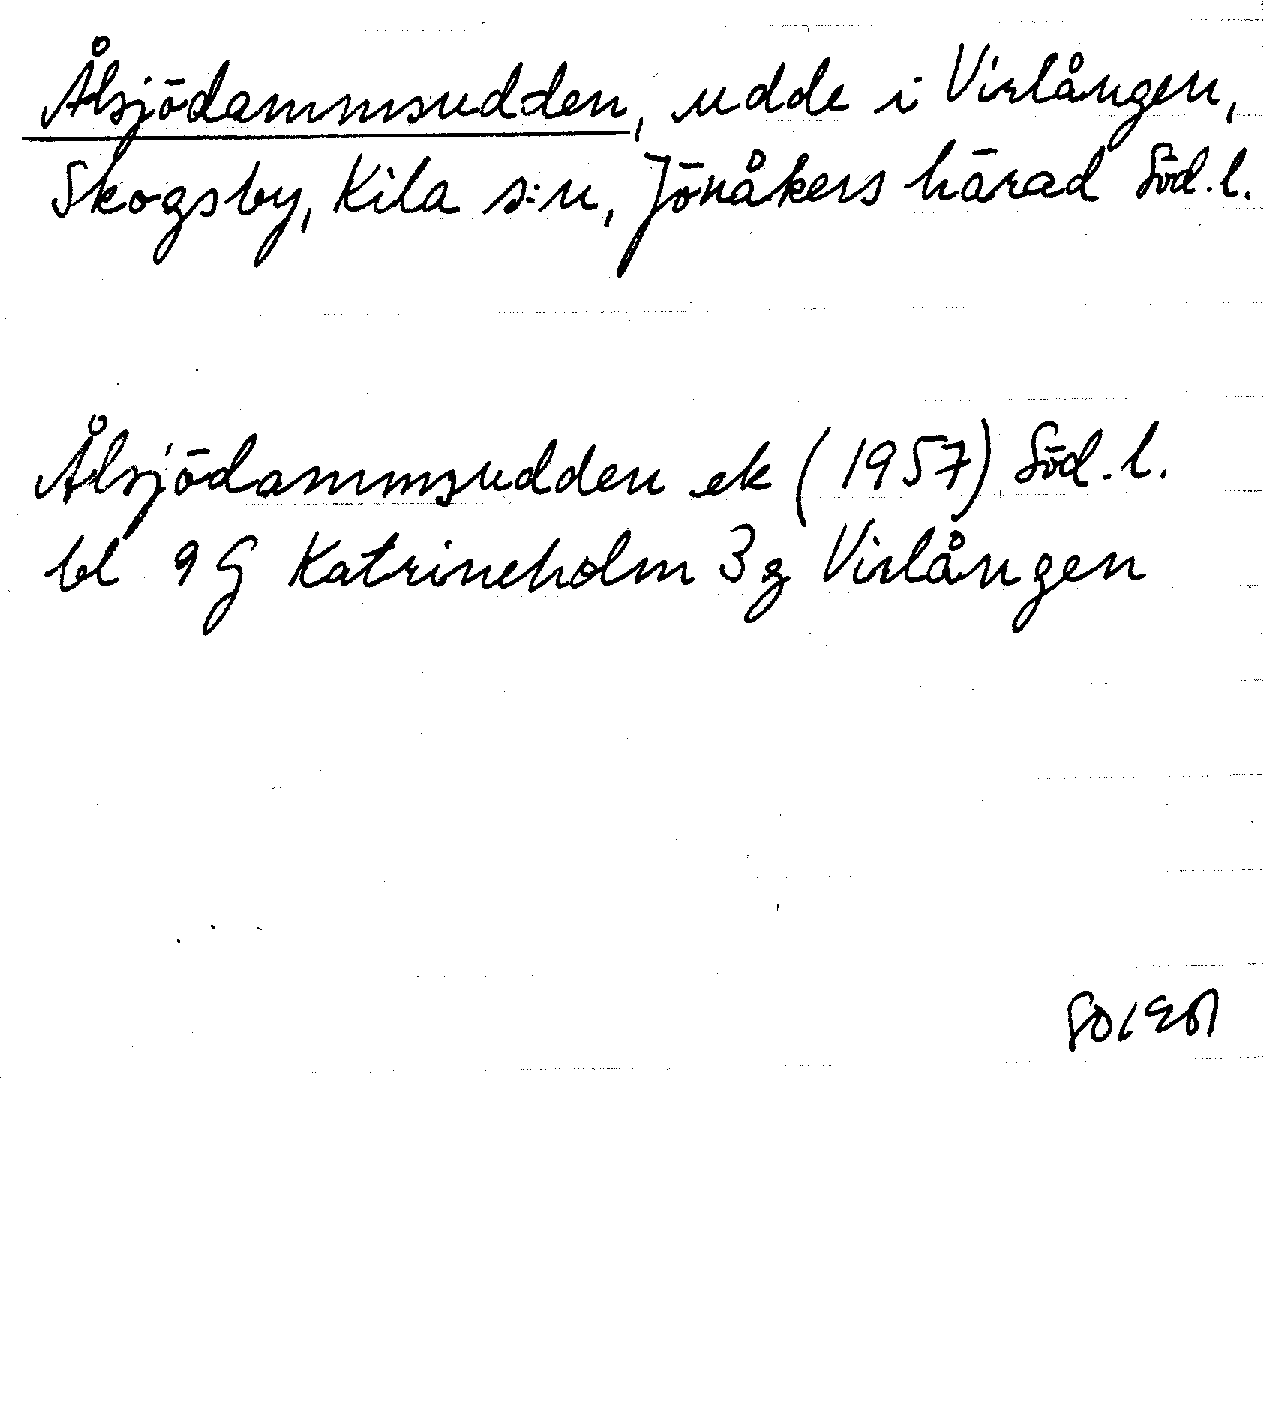 Ålsjödammsudden, udde i Virlången,
Skogsby, Kila s:n, Jönåkers härad Söd.l.
Ålsjödammsudden ek (1957) Söd.l.
bl 9G Katrineholm 3g Virlången